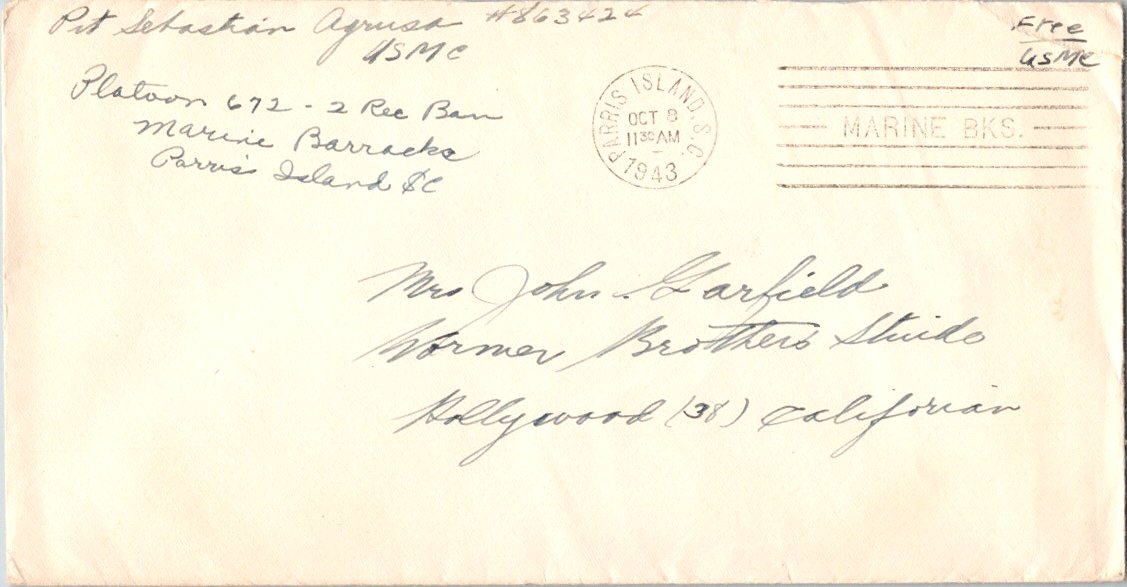 Pvt Sebastian Agrusa #863424
USMC
Platoon 672 - 2 Rec Ban
Marine Barracks
Parris Island SC
PARRIS ISLAND, S.C.
OCT 8
11 30 AM
1943
MARINE BKS.
Free
USMC
Mrs John Garfield
Wormer Brothers Stuido
Hollywood (38) Califorian